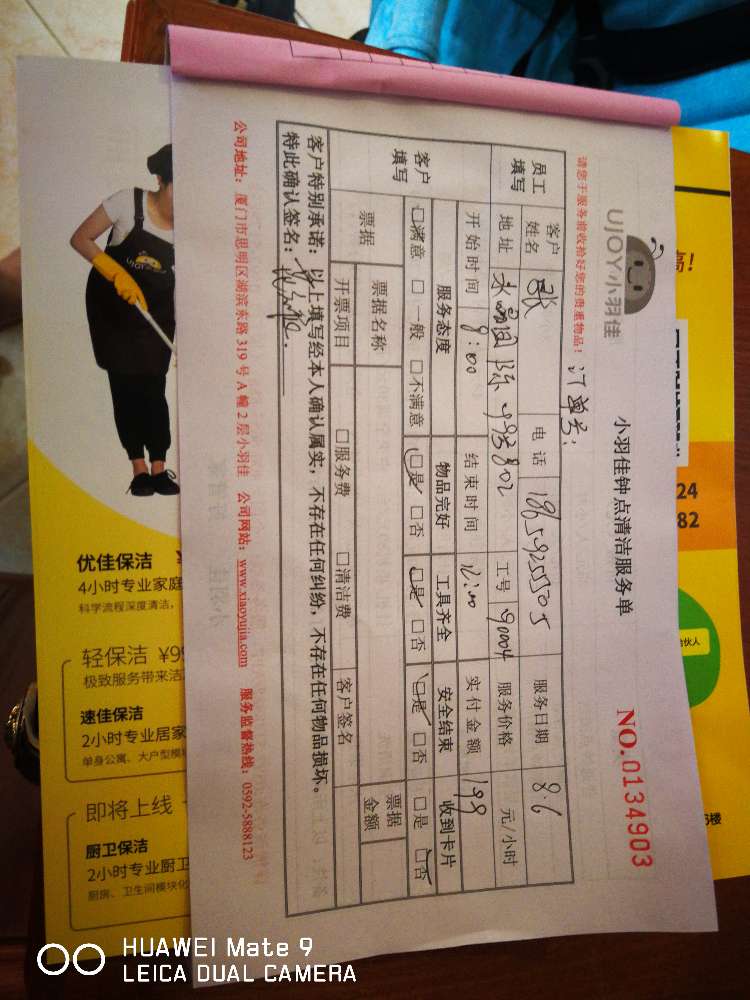 UJOY小羽佳
小羽佳钟点清洁服务单
NO.0134903
请您于服务前收拾好您的贵重物品!
订单号:
员工填写
客户姓名 张 电话 服务日期 8.6
地址 工号 90004 服务价格 元/小时
开始时间 8:00 结束时间 12:00 实付金额 199
客户填写
服务态度 物品完好 工具齐全 安全结束 收到卡片
□满意 □一般 □不满意 □是 □否 □是 □否 □是 □否 □是 □否
票据 票据名称 票据金额
开票项目 □服务费 □清洁费 客户签名
客户特别承诺:以上填写经本人确认属实,不存在任何纠纷,不存在任何物品损坏。
特此确认签名:
公司地址:厦门市思明区湖滨东路 319 号 A 幢 2 层小羽佳 公司网站:www.xiaoyujia.com 服务监督热线:0592-5888123
高!
24
82
合伙人
楼
UJOY
优佳保洁
4小时专业家庭
科学流程深度清洁,
轻保洁 ¥99
极致服务带来洁
速佳保洁
2小时专业居家
单身公寓、大户型模块
即将上线
厨卫保洁
2小时专业厨卫
厨房、卫生间模块化
HUAWEI Mate 9
LEICA DUAL CAMERA